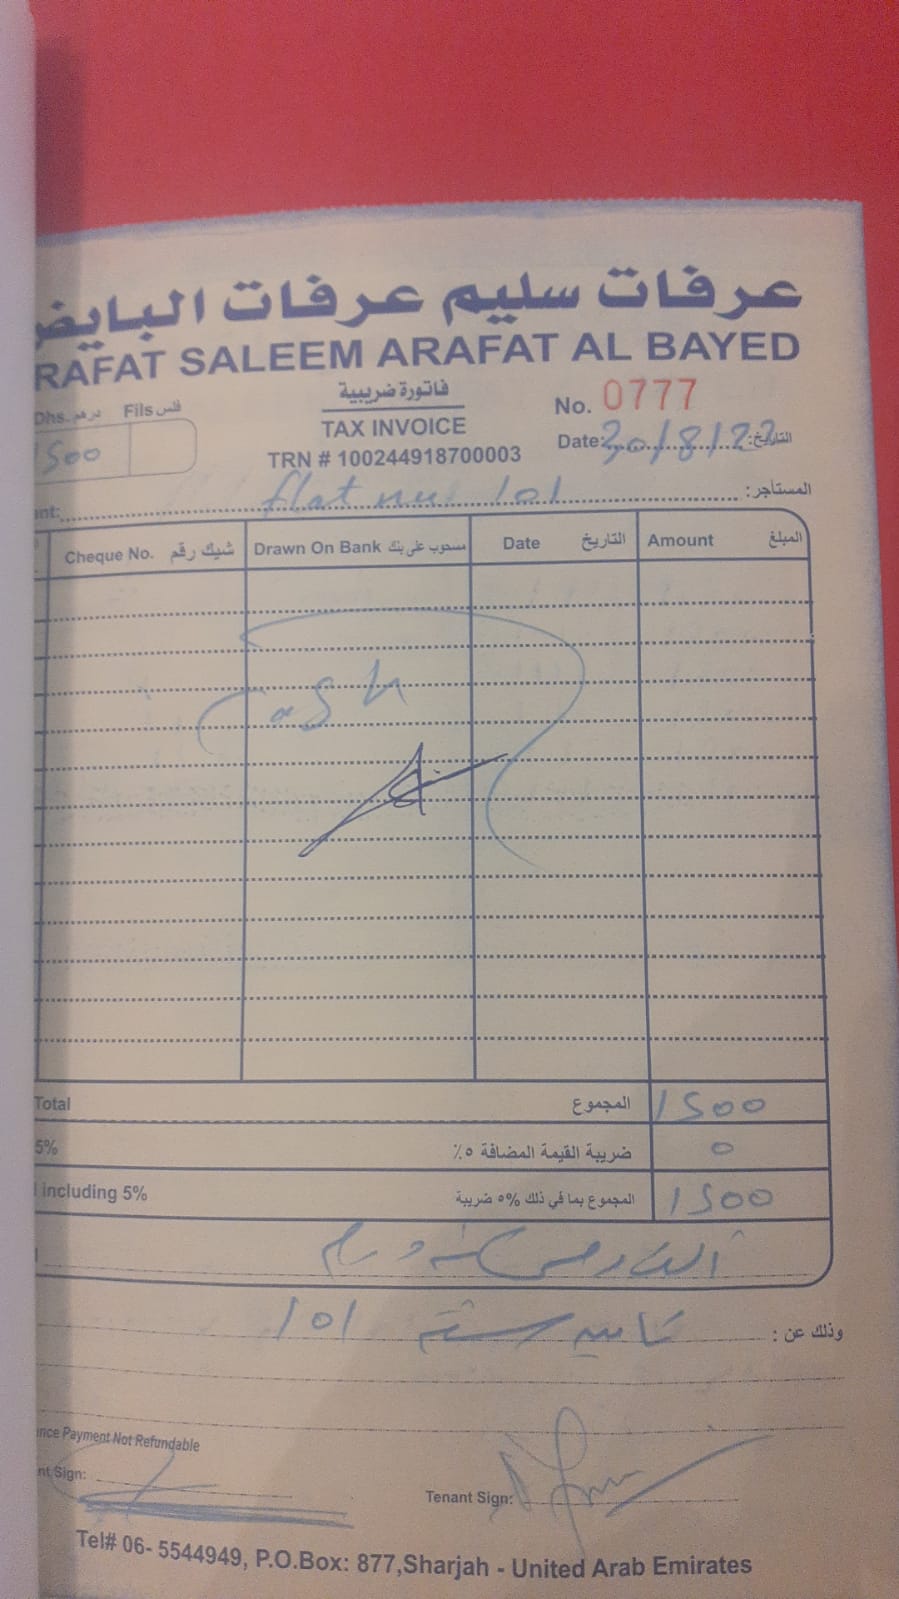 عرفات سليم عرفات البايض
RAFAT SALEEM ARAFAT AL BAYED
Dhs. درهم Fils فلس
1500
فاتورة ضريبية
TAX INVOICE
TRN # 100244918700003
No. 0777
Date: 30/8/22 التاريخ:
nt: flat no 101 المستأجر:
Cheque No. شيك رقم Drawn On Bank مسحوب على بنك Date التاريخ Amount المبلغ
Cash
Total المجموع 1500
5% ضريبة القيمة المضافة ٥٪ 0
including 5% المجموع بما في ذلك %٥ ضريبة 1500
الف و خمسمئة درهم
وذلك عن : تامين شقة 101
nce Payment Not Refundable
nt Sign: Tenant Sign:
Tel# 06- 5544949, P.O.Box: 877,Sharjah - United Arab Emirates